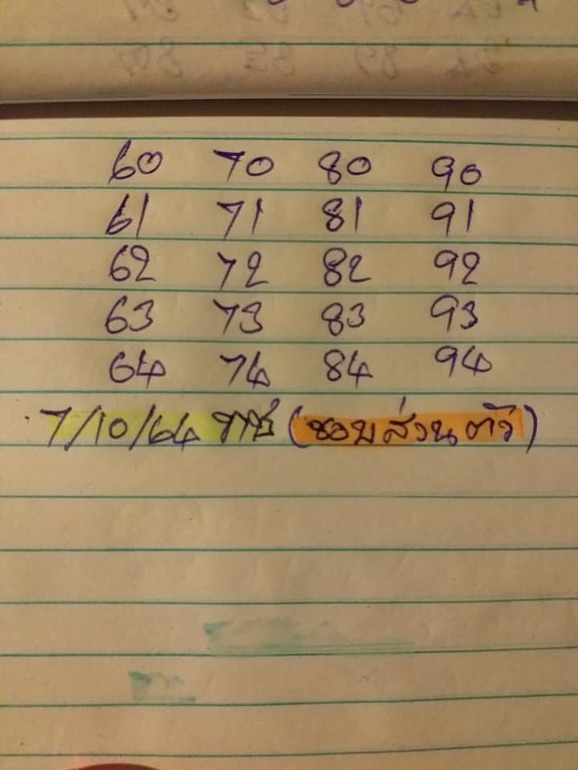 60 70 80 90
61 71 81 91
62 72 82 92
63 73 83 93
64 74 84 94
7/10/64 (ชอบส่วนตัว)